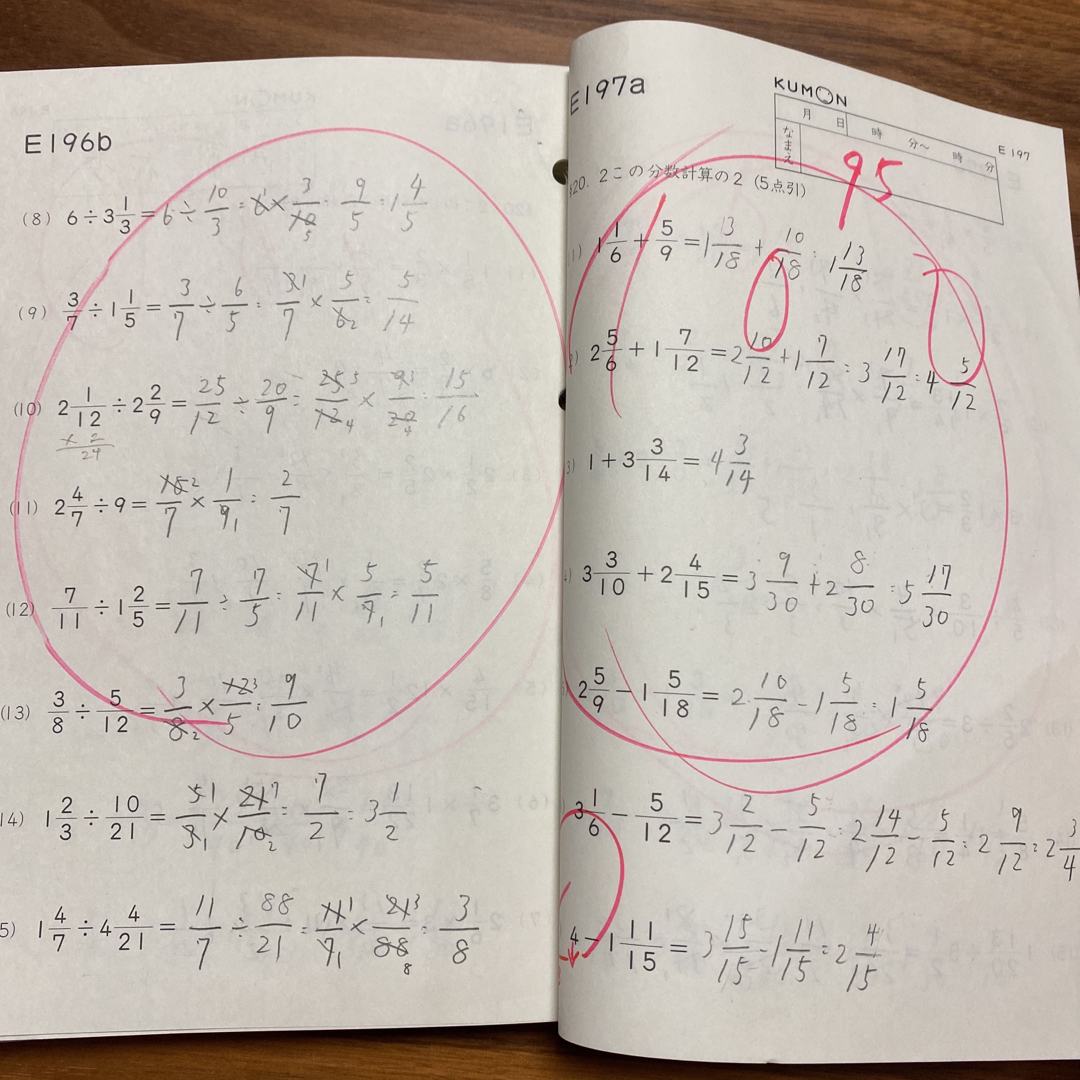 E196b
(8) 6÷3 1/3 = 6÷10/3 = 6 1 × 3/10 5 : 9/5 : 1 4/5
(9) 3/7÷1 1/5 = 3/7÷6/5 : 3 1/7 × 5/6 2 = 5/14
(10) 2 1/12÷2 2/9 = 25/12÷20/9 = 25 5/12 4 × 9 3/20 4 : 15/16
× 2
24
(11) 2 4/7÷9 = 18 2/7 × 1/9 1 : 2/7
(12) 7/11÷1 2/5 = 7/11÷7/5 : 7 1/11 × 5/7 1 = 5/11
(13) 3/8÷5/12 = 3/8 2 × 12 3/5 : 9/10
14) 1 2/3÷10/21 = 5 1/3 1 × 21 7/10 2 = 7/2 : 3 1/2
5) 1 4/7÷4 4/21 = 11/7÷88/21 = 11 1/7 1 × 21 3/88 8 = 3/8
E197a
KUMON
E 197
月 日 時 分〜 時 分
なまえ
95
20. 2この分数計算の2 (5点引)
1) 1 1/6 + 5/9 = 1 3/18 + 10/18 : 1 13/18
2 5/6 + 1 7/12 = 2 10/12 + 1 7/12 : 3 17/12 : 4 5/12
3) 1 + 3 3/14 = 4 3/14
3 3/10 + 2 4/15 = 3 9/30 + 2 8/30 = 5 17/30
2 5/9 − 1 5/18 = 2 10/18 − 1 5/18 : 1 5/18
3 1/6 − 5/12 = 3 2/12 − 5/12 : 2 14/12 − 5/12 : 2 9/12 : 2 3/4
4 − 1 11/15 = 3 15/15 − 1 11/15 : 2 4/15